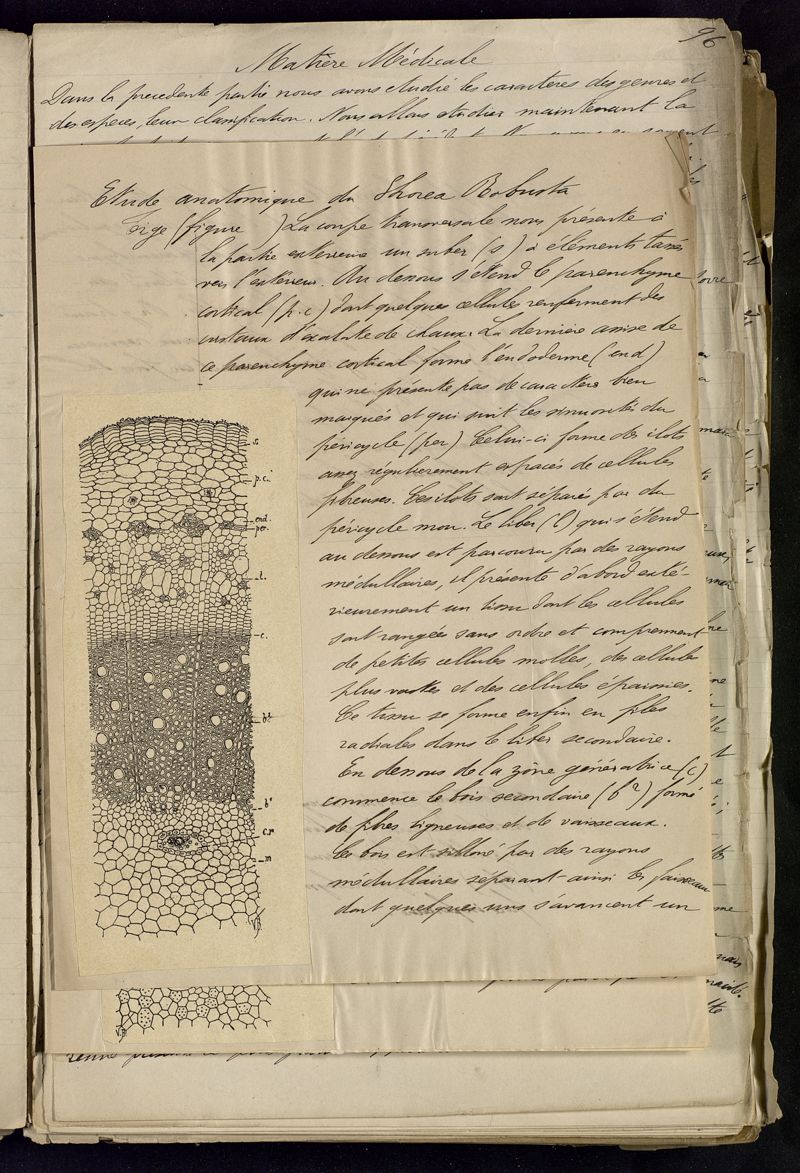 96
Matière Médicale
Dans la precedente partie nous avons étudié les caractères des genres et
des espèces, leur classification. Nous allons etudier maintenant la
Etude anatomique du Shorea Robusta
Tige (figure ) La coupe transversale nous présente à
la partie exterieure un suber (s) à eléments tassés
vers l'extérieur. Au dessous s'étend le parenchyme
cortical (p.c) dont quelques cellules renferment des
cristaux d'oxalate de chaux. La dernière assise de
ce parenchyme cortical forme l'endoderme (end)
qui ne présente pas de caractères bien
marqués et qui suit les sinuosités du
péricycle (per) Celui-ci forme des ilots
assez régulierement espacés de cellules
fibreuses. Ces ilots sont séparés par du
péricycle mou. Le liber (l) qui s'étend
au dessous est parcouru par des rayons
médullaires, il présente d'abord exté-
rieurement un tissu dont les cellules
sont rangées sans ordre et comprennent
de petites cellules molles, des cellules
plus vastes et des cellules épaissies.
Ce tissu se forme enfin en files
radiales dans le liber secondaire.
En dessous de la zône génératrice (c)
commence le bois secondaire (b²) formé
de fibres ligneuses et de vaisseaux.
Ce bois est silloné par des rayons
médullaires séparant ainsi les faisceaux
dont quelques uns s'avancent un
s.
p.c.
end.
per.
l.
c.
b²
b'
c.s
m
V.B
V.B